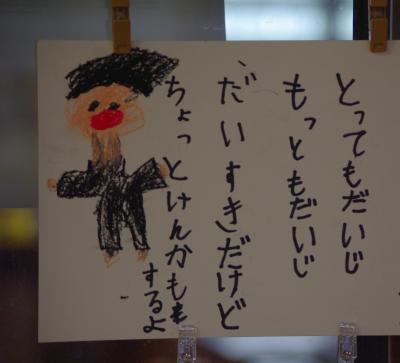 とってもだいじ
もっともだいじ
だいすきだけど
ちょっとけんかもも
するよ